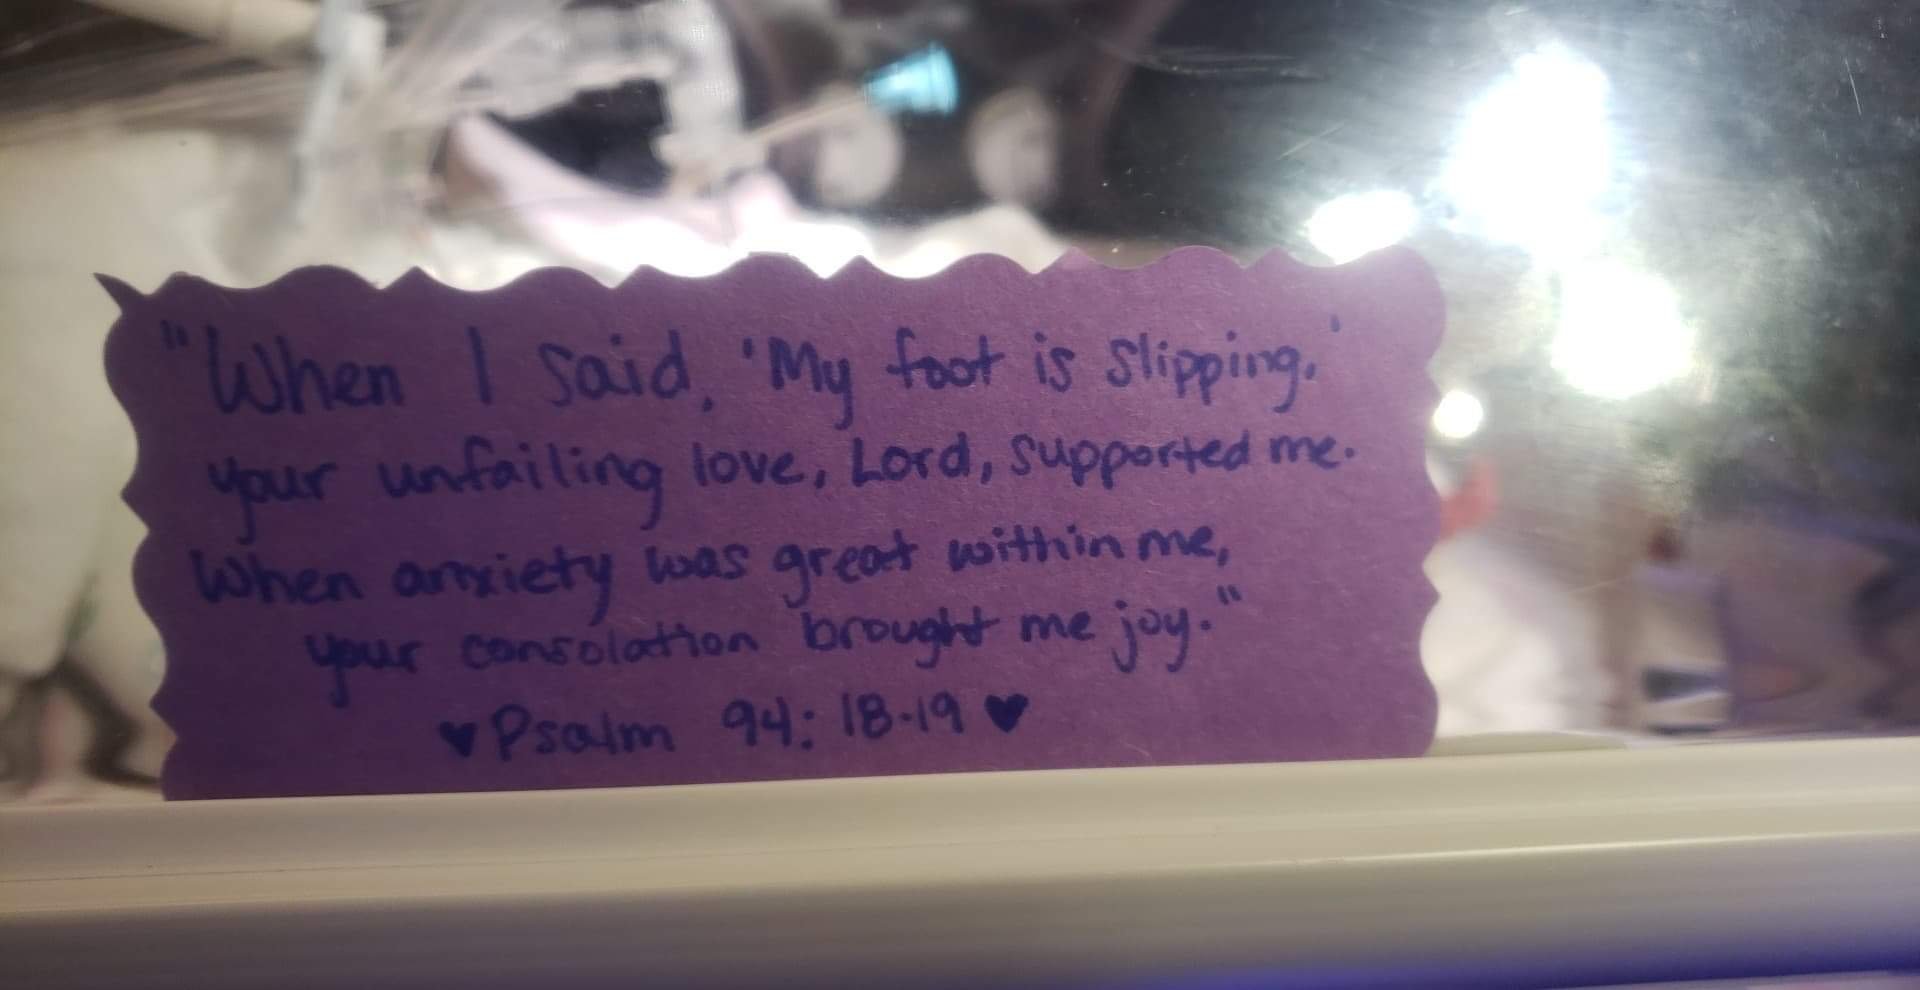 "When I said, 'My foot is slipping,'
your unfailing love, Lord, supported me.
When anxiety was great within me,
your consolation brought me joy."
♥ Psalm 94:18-19 ♥